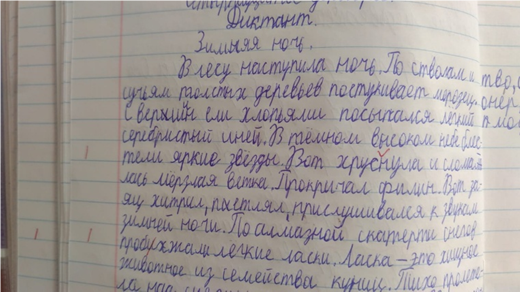 Диктант.
Зимняя ночь.
В лесу наступила ночь. По стволам и
сучьям толстых деревьев постукивает мороз
С верхних ели хлопьями посыпался легкий
серебристый иней. В тёмном высоком небе блес-
тели яркие звёзды. Вот хруснула и слома
лась мёрзлая ветка. Прокричал филин. Вот за-
яц хитрил, пъетлял, прислушивался к звукам
зимней ночи. По алмазной скатерти снегов
пробухжали легкие ласки. Ласка - это хищное
животное из семейства куниц. Тихо пролете-
ла над